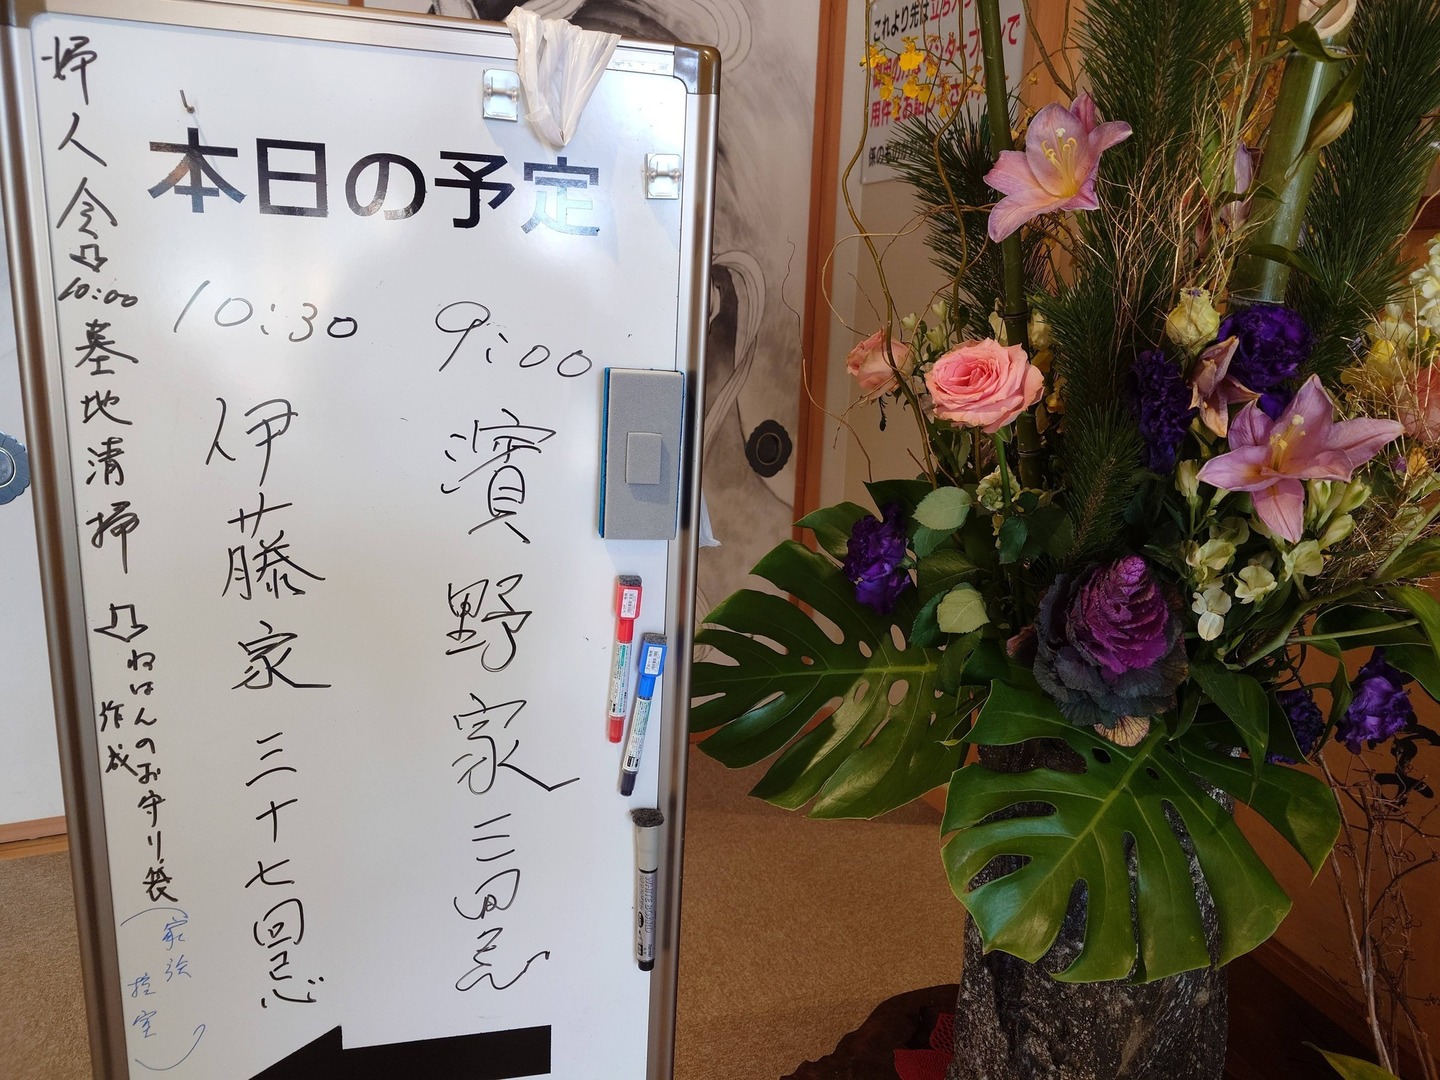 本日の予定
9:00
濱野家三回忌
10:30
伊藤家三十七回忌
婦人会⇨10:00墓地清掃⇨ねはんのお守り袋
作成
(家族
控室)
これより先は立ち入り
用件をお伝え下さい